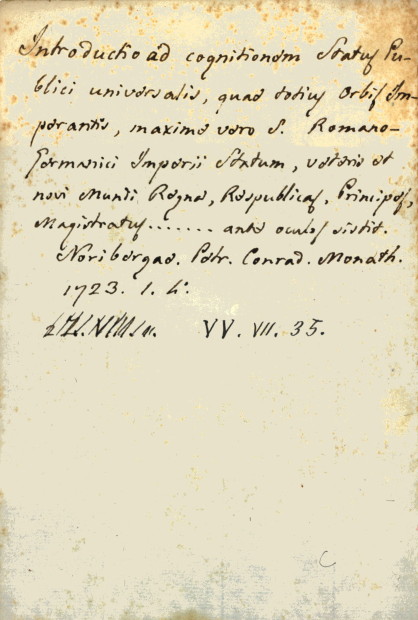 Introductio ad cognitionem Status Pu-
blici universalis, quae totius Orbis Im-
perantis, maxime vero S. Romano-
Germanici Imperii Statum, veteris et
novi Mundi Regna, Respublicas, Principes,
Magistratus....... ante oculos sistit.
Noribergae. Petr. Conrad. Monath.
1723. 1. 4.
VV. VII. 35.